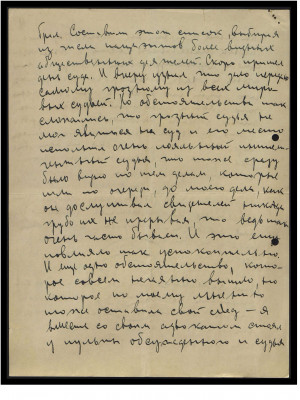 бря. Составили этот список, выбирая
из там пациентов более видных
общественных деятелей. Скоро пришел
день суда. И вчера узнал, что дело передано
самому грозному из всех миро-
вых судей. Но обстоятельства так
сложились, что грозный судья не
мог явиться на суд и его место
исполнял очень лояльный интелли-
гентный судья, что тоже сразу
было видно по тем делам, которые
шли по очереди, до моего дела, как
он дослушивал свидетелей никогда
грубо их не прерывая, что ведь так
очень часто бывает. И это еще
повлияло так успокоительно.
И еще одно обстоятельство, кото-
рое совсем нечаянно вышло, но
которое по моему мнению
тоже оставило свой след – я
вместе со своим адвокатом стоял
у пульта обсужденного и судья